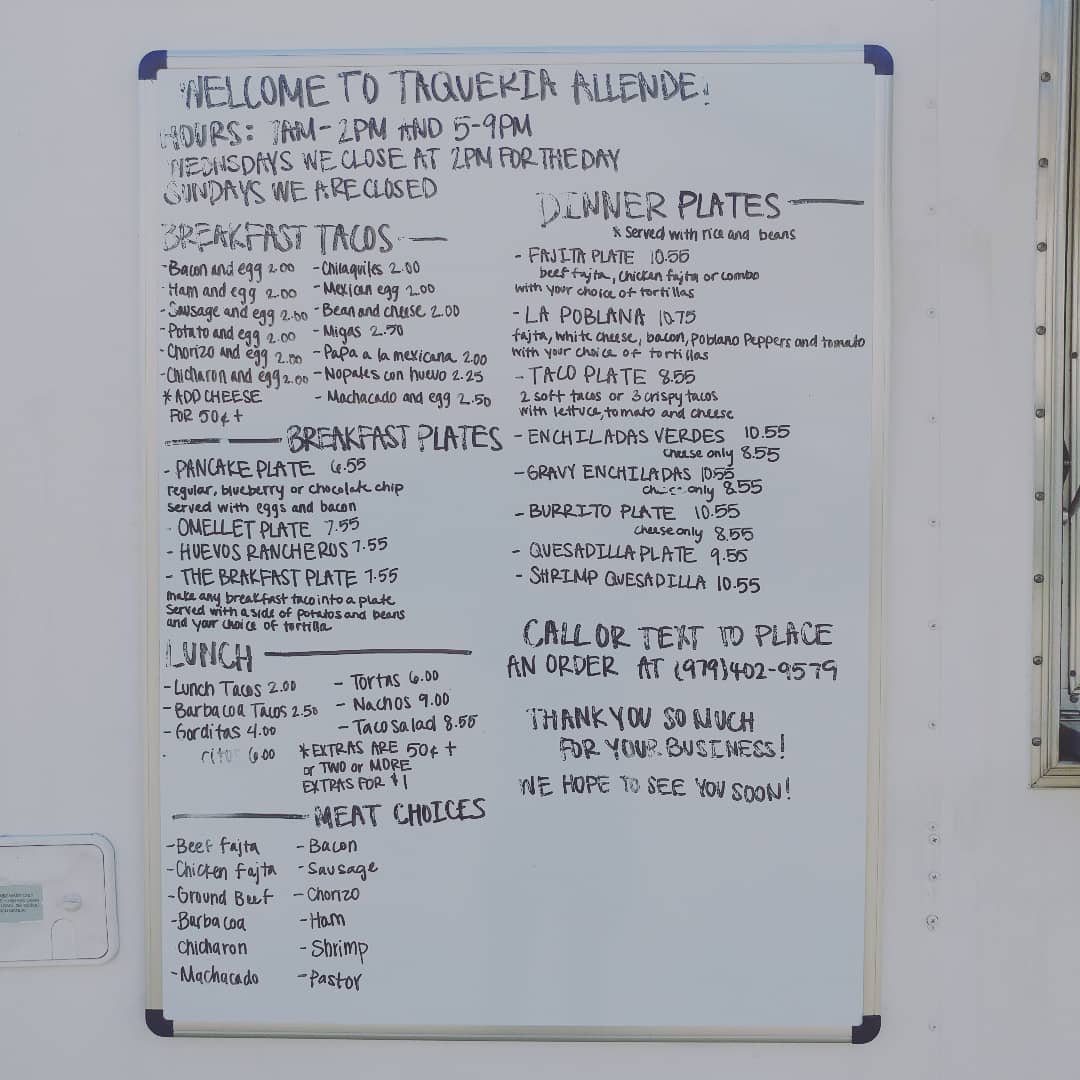 WELCOME TO TAQUERIA ALLENDE!
HOURS: 7AM-2PM AND 5-9PM
WEDNSDAYS WE CLOSE AT 2PM FOR THE DAY
SUNDAYS WE ARE CLOSED
BREAKFAST TACOS
-Bacon and egg 2.00
-Ham and egg 2.00
-Sausage and egg 2.00
-Potato and egg 2.00
-Chorizo and egg 2.00
-Chicharon and egg 2.00
*ADD CHEESE
FOR 50¢+
-Chilaquiles 2.00
-Mexican egg 2.00
-Bean and cheese 2.00
-Migas 2.50
-Papa a la mexicana 2.00
-Nopales con huevo 2.25
-Machacado and egg 2.50
BREAKFAST PLATES
-PANCAKE PLATE 6.55
regular, blueberry or chocolate chip
served with eggs and bacon
-OMELLET PLATE 7.55
-HUEVOS RANCHEROS 7.55
-THE BRAKFAST PLATE 7.55
make any breakfast taco into a plate
Served with a side of potatos and beans
and your choice of tortilla
LUNCH
-Lunch Tacos 2.00
-Barbacoa Tacos 2.50
-Gorditas 4.00
6.00
-Tortas 6.00
-Nachos 9.00
-Taco salad 8.55
*EXTRAS ARE 50¢+
or TWO or MORE
EXTRAS FOR $1
MEAT CHOICES
-Beef fajta
-Chicken fajta
-Ground Beef
-Barbacoa
Chicharon
-Machacado
-Bacon
-Sausage
-Chorizo
-Ham
-Shrimp
-Pastor
DINNER PLATES
*Served with rice and beans
-FAJITA PLATE 10.55
beef fajta, chicken fajta or combo
with your choice of tortillas
-LA POBLANA 10.75
fajta, white cheese, bacon, Poblano Peppers and tomato
with your choice of tortillas
-TACO PLATE 8.55
2 soft tacos or 3 crispy tacos
with lettuce, tomato and cheese
-ENCHILADAS VERDES 10.55
cheese only 8.55
-GRAVY ENCHILADAS 10.55
only 8.55
-BURRITO PLATE 10.55
cheese only 8.55
-QUESADILLA PLATE 9.55
-SHRIMP QUESADILLA 10.55
CALL OR TEXT TO PLACE
AN ORDER AT (979)402-9579
THANK YOU SO MUCH
FOR YOUR BUSINESS!
WE HOPE TO SEE YOU SOON!